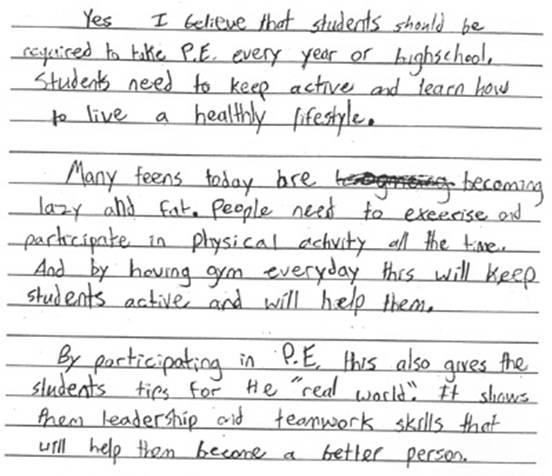 Yes I believe that students should be
required to take P.E. every year or highschool.
Students need to keep active and learn how
to live a healthly lifestyle.
Many teens today are becoming
lazy and fat. People need to exeercise and
participate in physical activity all the time.
And by having gym everyday this will keep
students active and will help them.
By participating in P.E. this also gives the
students tips for the "real world". It shows
them leadership and teamwork skills that
will help them become a better person.